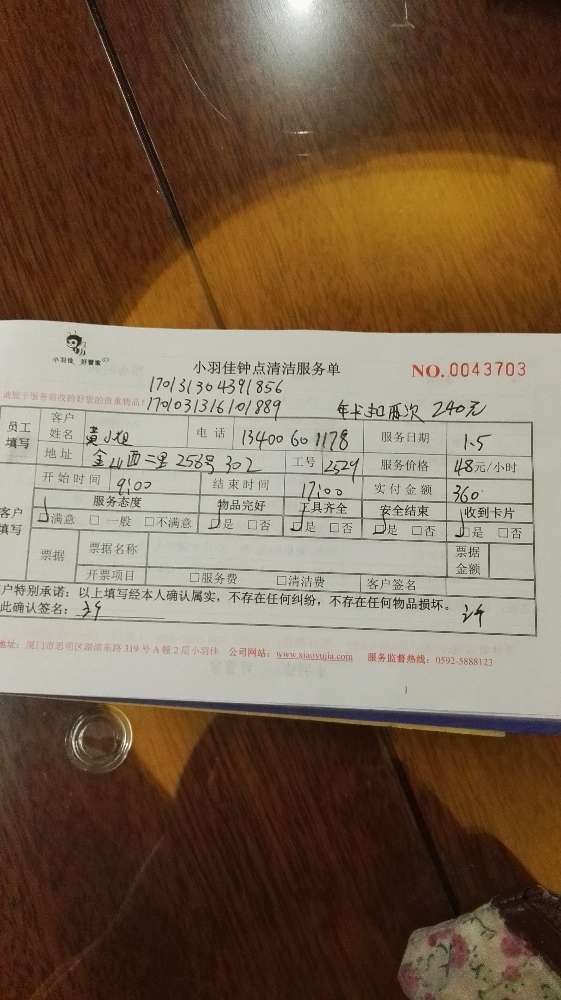 小羽佳 好管家
小羽佳钟点清洁服务单
NO.0043703
170131304391856
170103131610 1889
年卡扣两次 240元
员工填写
客户姓名 黄小姐 电话 13400601178 服务日期 1.5
地址 金山西二里256号302 工号 2529 服务价格 48元/小时
开始时间 9:00 结束时间 17:00 实付金额 360
客户填写
服务态度 物品完好 工具齐全 安全结束 收到卡片
☑满意 □一般 □不满意 ☑是 □否 ☑是 □否 ☑是 □否 ☑是 □否
票据 票据名称 票据金额
开票项目 □服务费 □清洁费 客户签名
户特别承诺：以上填写经本人确认属实，不存在任何纠纷，不存在任何物品损坏。
此确认签名：
地址：厦门市思明区湖滨东路319号A幢2层小羽佳 公司网站：www.xiaoyujia.com 服务监督热线：0592-5888123
1